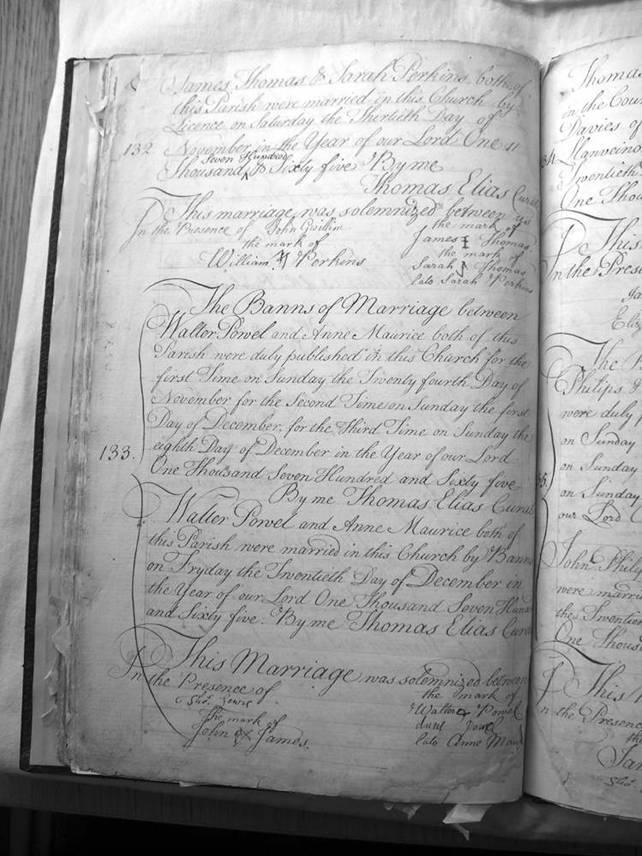 James Thomas & Sarah Perkins both of
this Parish were married in this Church by
Licence on Saturday the Thirtieth Day of
132 November in the Year of our Lord One
Seven Hundred
Thousand & Sixty five By me
Thomas Elias Curate
This marriage was solemnized between us
In the Presence of John Gwillim
the mark of
William Perkins
the mark of
James Thomas
the mark of
Sarah Thomas
late Sarah Perkins
The Banns of Marriage between
Walter Powel and Anne Maurice both of this
Parish were duly published in this Church for the
first Time on Sunday the Twenty fourth Day of
November for the Second Time on Sunday the first
Day of December, for the Third Time on Sunday the
eighth Day of December in the Year of our Lord
133.
One Thousand Seven Hundred and Sixty five
By me Thomas Elias Curate
Walter Powel and Anne Maurice both of
this Parish were married in this Church by Banns
on Fryday the Twentieth Day of December in
the Year of our Lord One Thousand Seven Hund
and Sixty five. By me Thomas Elias Cura
This Marriage was solemnized between
In the Presence of
the mark of
John James.
the mark of
Walter Powel
late Anne Mau
Thomas
in the Cou
Davies of
Llanveino
Twentieth
One Thou
This
In the Prese
The B
Philips
were duly p
on Sunday
on Sunday
on Sunday
our Lord
John Philip
were marri
the Twentie
One Thous
This
In the Presence
the